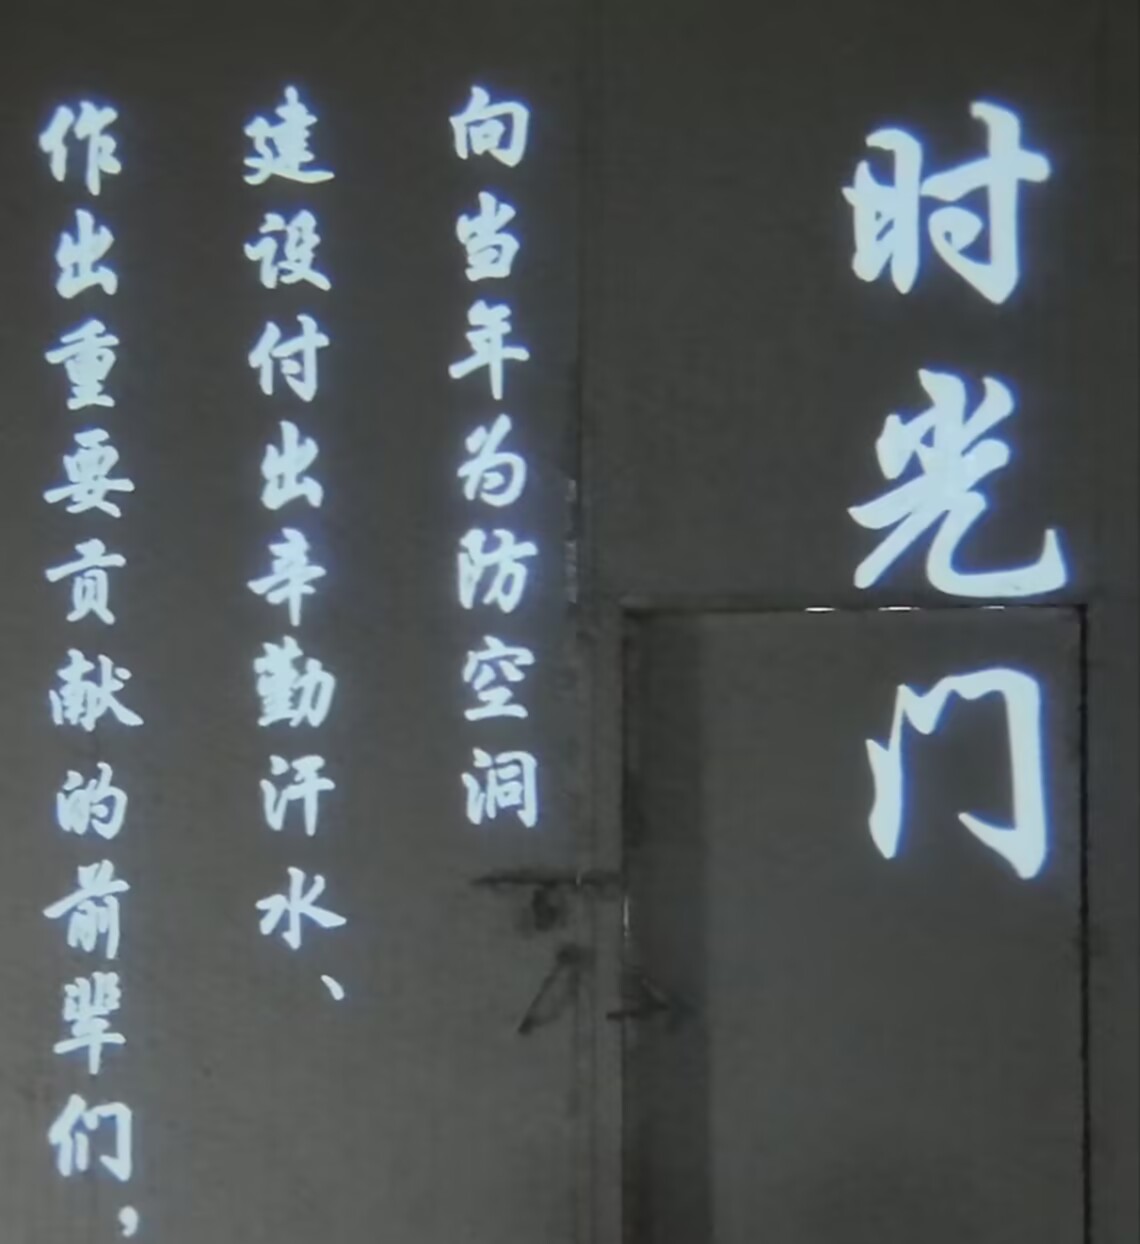 时光门
向当年为防空洞
建设付出辛勤汗水、
作出重要贡献的前辈们，